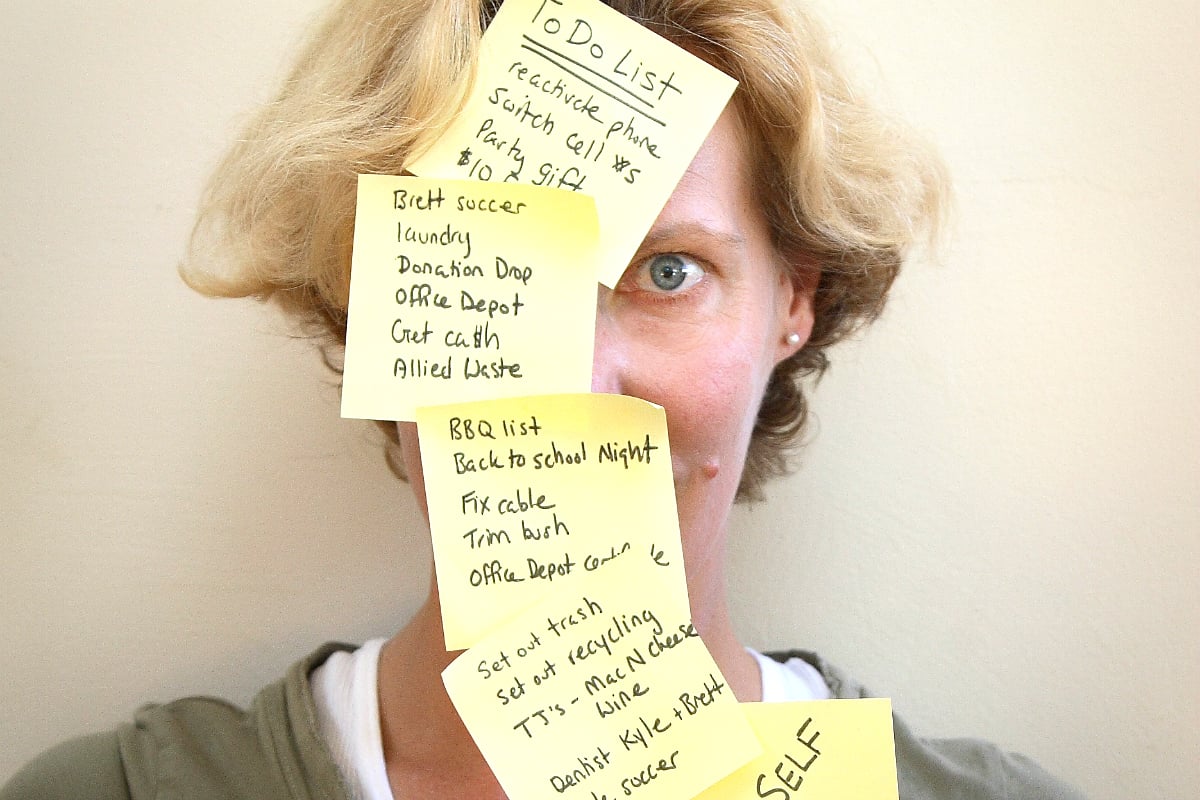 To Do List
reactivate phone
Switch cell #s
Party gift
$10
Brett soccer
laundry
Donation Drop
Office Depot
Get ca$h
Allied Waste
BBQ list
Back to school Night
Fix cable
Trim bush
Office Depot
Set out trash
Set out recycling
TJ's - Mac N Cheese
Wine
Dentist Kyle + Brett
soccer
SELF